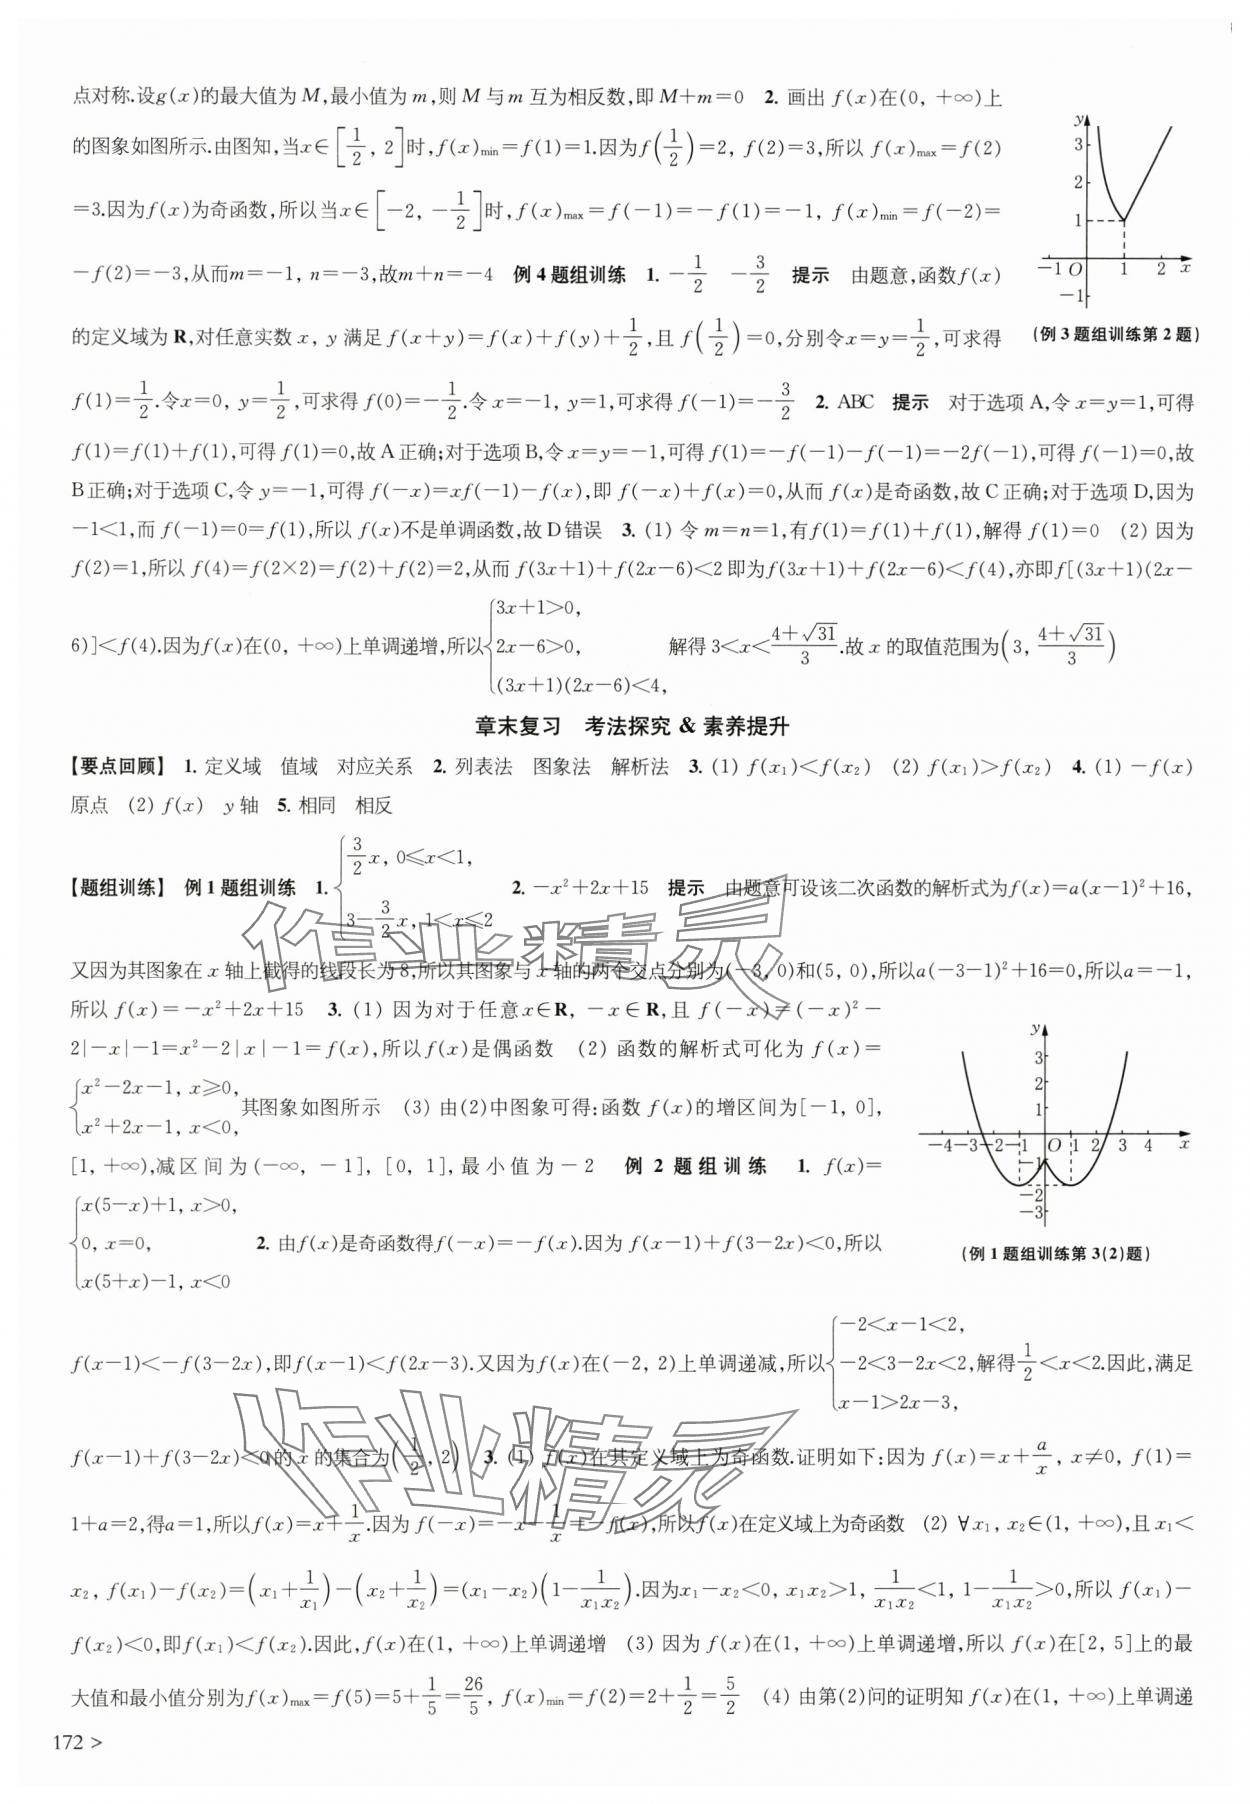 点对称.设g(x)的最大值为M,最小值为m,则M与m互为相反数,即M+m=0 2. 画出f(x)在(0, +∞)上
的图象如图所示.由图知,当x∈[1/2, 2]时,f(x)min=f(1)=1.因为f(1/2)=2, f(2)=3,所以f(x)max=f(2)
=3.因为f(x)为奇函数,所以当x∈[-2, -1/2]时,f(x)max=f(-1)=-f(1)=-1, f(x)min=f(-2)=
-f(2)=-3,从而m=-1, n=-3,故m+n=-4 例4题组训练 1. -1/2 -3/2 提示 由题意,函数f(x)
的定义域为R,对任意实数x, y满足f(x+y)=f(x)+f(y)+1/2,且f(1/2)=0,分别令x=y=1/2,可求得
y
3
2
1
-1 O 1 2 x
-1
(例3题组训练第2题)
f(1)=1/2.令x=0, y=1/2,可求得f(0)=-1/2.令x=-1, y=1,可求得f(-1)=-3/2 2. ABC 提示 对于选项A,令x=y=1,可得
f(1)=f(1)+f(1),可得f(1)=0,故A正确;对于选项B,令x=y=-1,可得f(1)=-f(-1)-f(-1)=-2f(-1),可得f(-1)=0,故
B正确;对于选项C,令y=-1,可得f(-x)=xf(-1)-f(x),即f(-x)+f(x)=0,从而f(x)是奇函数,故C正确;对于选项D,因为
-1<1,而f(-1)=0=f(1),所以f(x)不是单调函数,故D错误 3. (1) 令m=n=1,有f(1)=f(1)+f(1),解得f(1)=0 (2) 因为
f(2)=1,所以f(4)=f(2×2)=f(2)+f(2)=2,从而f(3x+1)+f(2x-6)<2即为f(3x+1)+f(2x-6)<f(4),亦即f[(3x+1)(2x-
6)]<f(4).因为f(x)在(0, +∞)上单调递增,所以{3x+1>0, 2x-6>0, (3x+1)(2x-6)<4, 解得3<x<(4+√31)/3.故x的取值范围为(3, (4+√31)/3)
章末复习 考法探究 & 素养提升
【要点回顾】 1. 定义域 值域 对应关系 2. 列表法 图象法 解析法 3. (1) f(x₁)<f(x₂) (2) f(x₁)>f(x₂) 4. (1) -f(x)
原点 (2) f(x) y轴 5. 相同 相反
【题组训练】 例1题组训练 1. {3/2 x, 0≤x<1, 3-3/2 x, 1≤x≤2 2. -x²+2x+15 提示 由题意可设该二次函数的解析式为f(x)=a(x-1)²+16,
又因为其图象在x轴上截得的线段长为8,所以其图象与x轴的两个交点分别为(-3, 0)和(5, 0),所以a(-3-1)²+16=0,所以a=-1,
所以f(x)=-x²+2x+15 3. (1) 因为对于任意x∈R, -x∈R,且f(-x)=(-x)²-
2|-x|-1=x²-2|x|-1=f(x),所以f(x)是偶函数 (2) 函数的解析式可化为f(x)=
{x²-2x-1, x≥0, x²+2x-1, x<0, 其图象如图所示 (3) 由(2)中图象可得:函数f(x)的增区间为[-1, 0],
[1, +∞),减区间为(-∞, -1], [0, 1],最小值为-2 例2题组训练 1. f(x)=
{x(5-x)+1, x>0, 0, x=0, x(5+x)-1, x<0 2. 由f(x)是奇函数得f(-x)=-f(x).因为f(x-1)+f(3-2x)<0,所以
y
3
2
1
-4-3-2-1 O 1 2 3 4 x
-1
-2
-3
(例1题组训练第3(2)题)
f(x-1)<-f(3-2x),即f(x-1)<f(2x-3).又因为f(x)在(-2, 2)上单调递减,所以{-2<x-1<2, -2<3-2x<2, x-1>2x-3, 解得1/2<x<2.因此,满足
f(x-1)+f(3-2x)<0的x的集合为(1/2, 2) 3. (1) f(x)在其定义域上为奇函数.证明如下:因为f(x)=x+a/x, x≠0, f(1)=
1+a=2,得a=1,所以f(x)=x+1/x.因为f(-x)=-x-1/x=-f(x),所以f(x)在定义域上为奇函数 (2) ∀x₁, x₂∈(1, +∞),且x₁<
x₂, f(x₁)-f(x₂)=(x₁+1/x₁)-(x₂+1/x₂)=(x₁-x₂)(1-1/x₁x₂).因为x₁-x₂<0, x₁x₂>1, 1/x₁x₂<1, 1-1/x₁x₂>0,所以f(x₁)-
f(x₂)<0,即f(x₁)<f(x₂).因此,f(x)在(1, +∞)上单调递增 (3) 因为f(x)在(1, +∞)上单调递增,所以f(x)在[2, 5]上的最
大值和最小值分别为f(x)max=f(5)=5+1/5=26/5, f(x)min=f(2)=2+1/2=5/2 (4) 由第(2)问的证明知f(x)在(1, +∞)上单调递
172 >
作业精灵
作业精灵